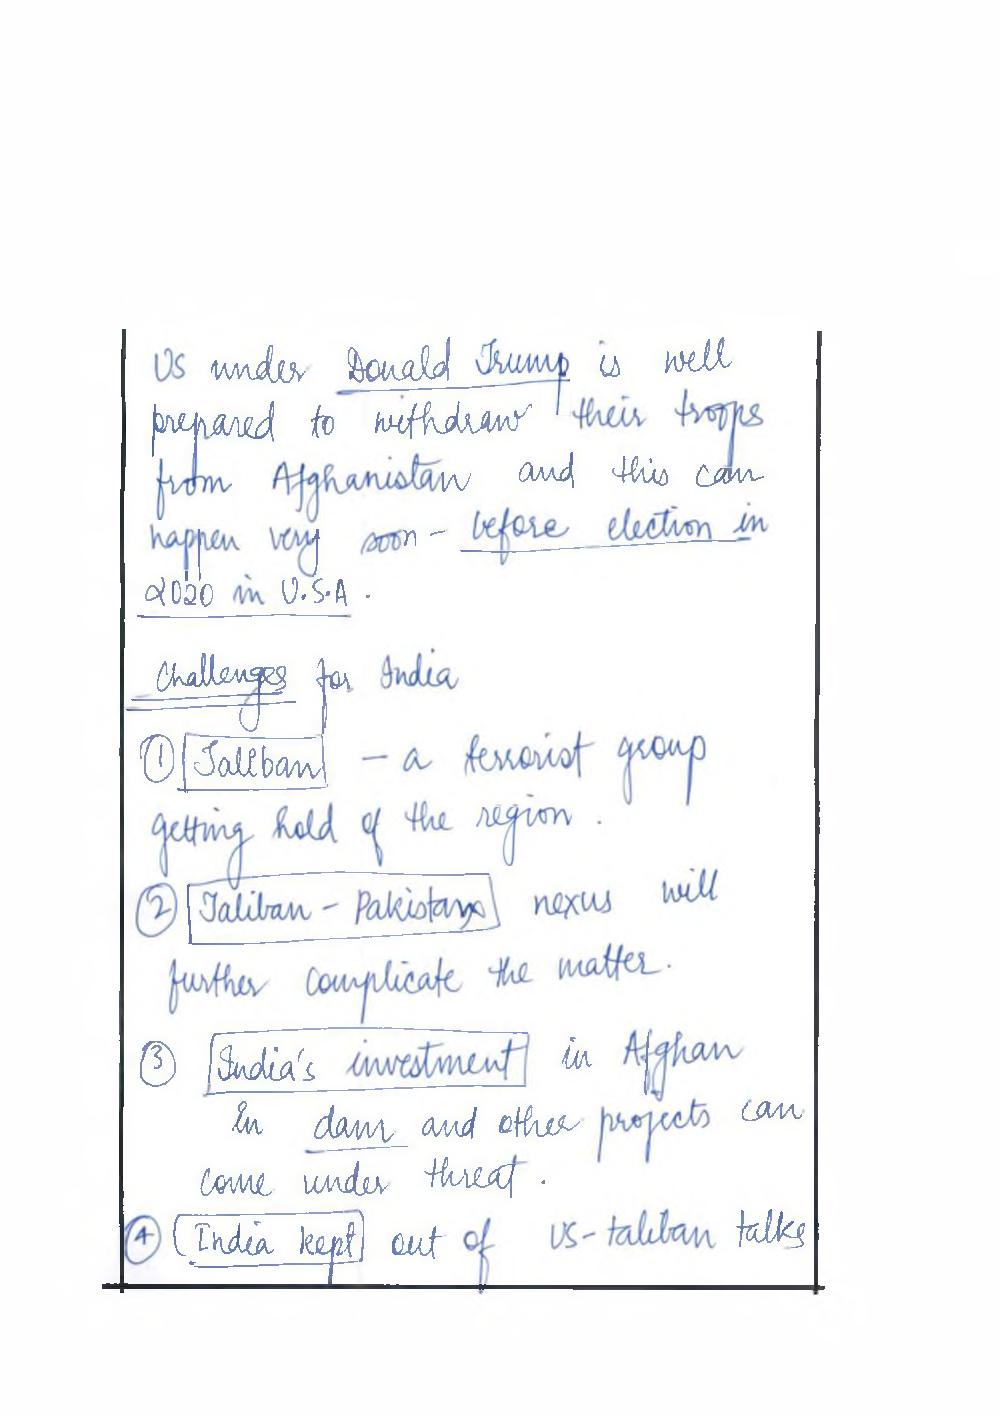 US under Donald Trump is well
prepared to withdraw their troops
from Afghanistan and this can
happen very soon - before election in
2020 in U.S.A.
Challenges for India
① Taliban - a terrorist group
getting hold of the region.
② Taliban - Pakistan nexus will
further complicate the matter.
③ India's investment in Afghan
In dam and other projects can
come under threat.
④ India kept out of US-taliban talks